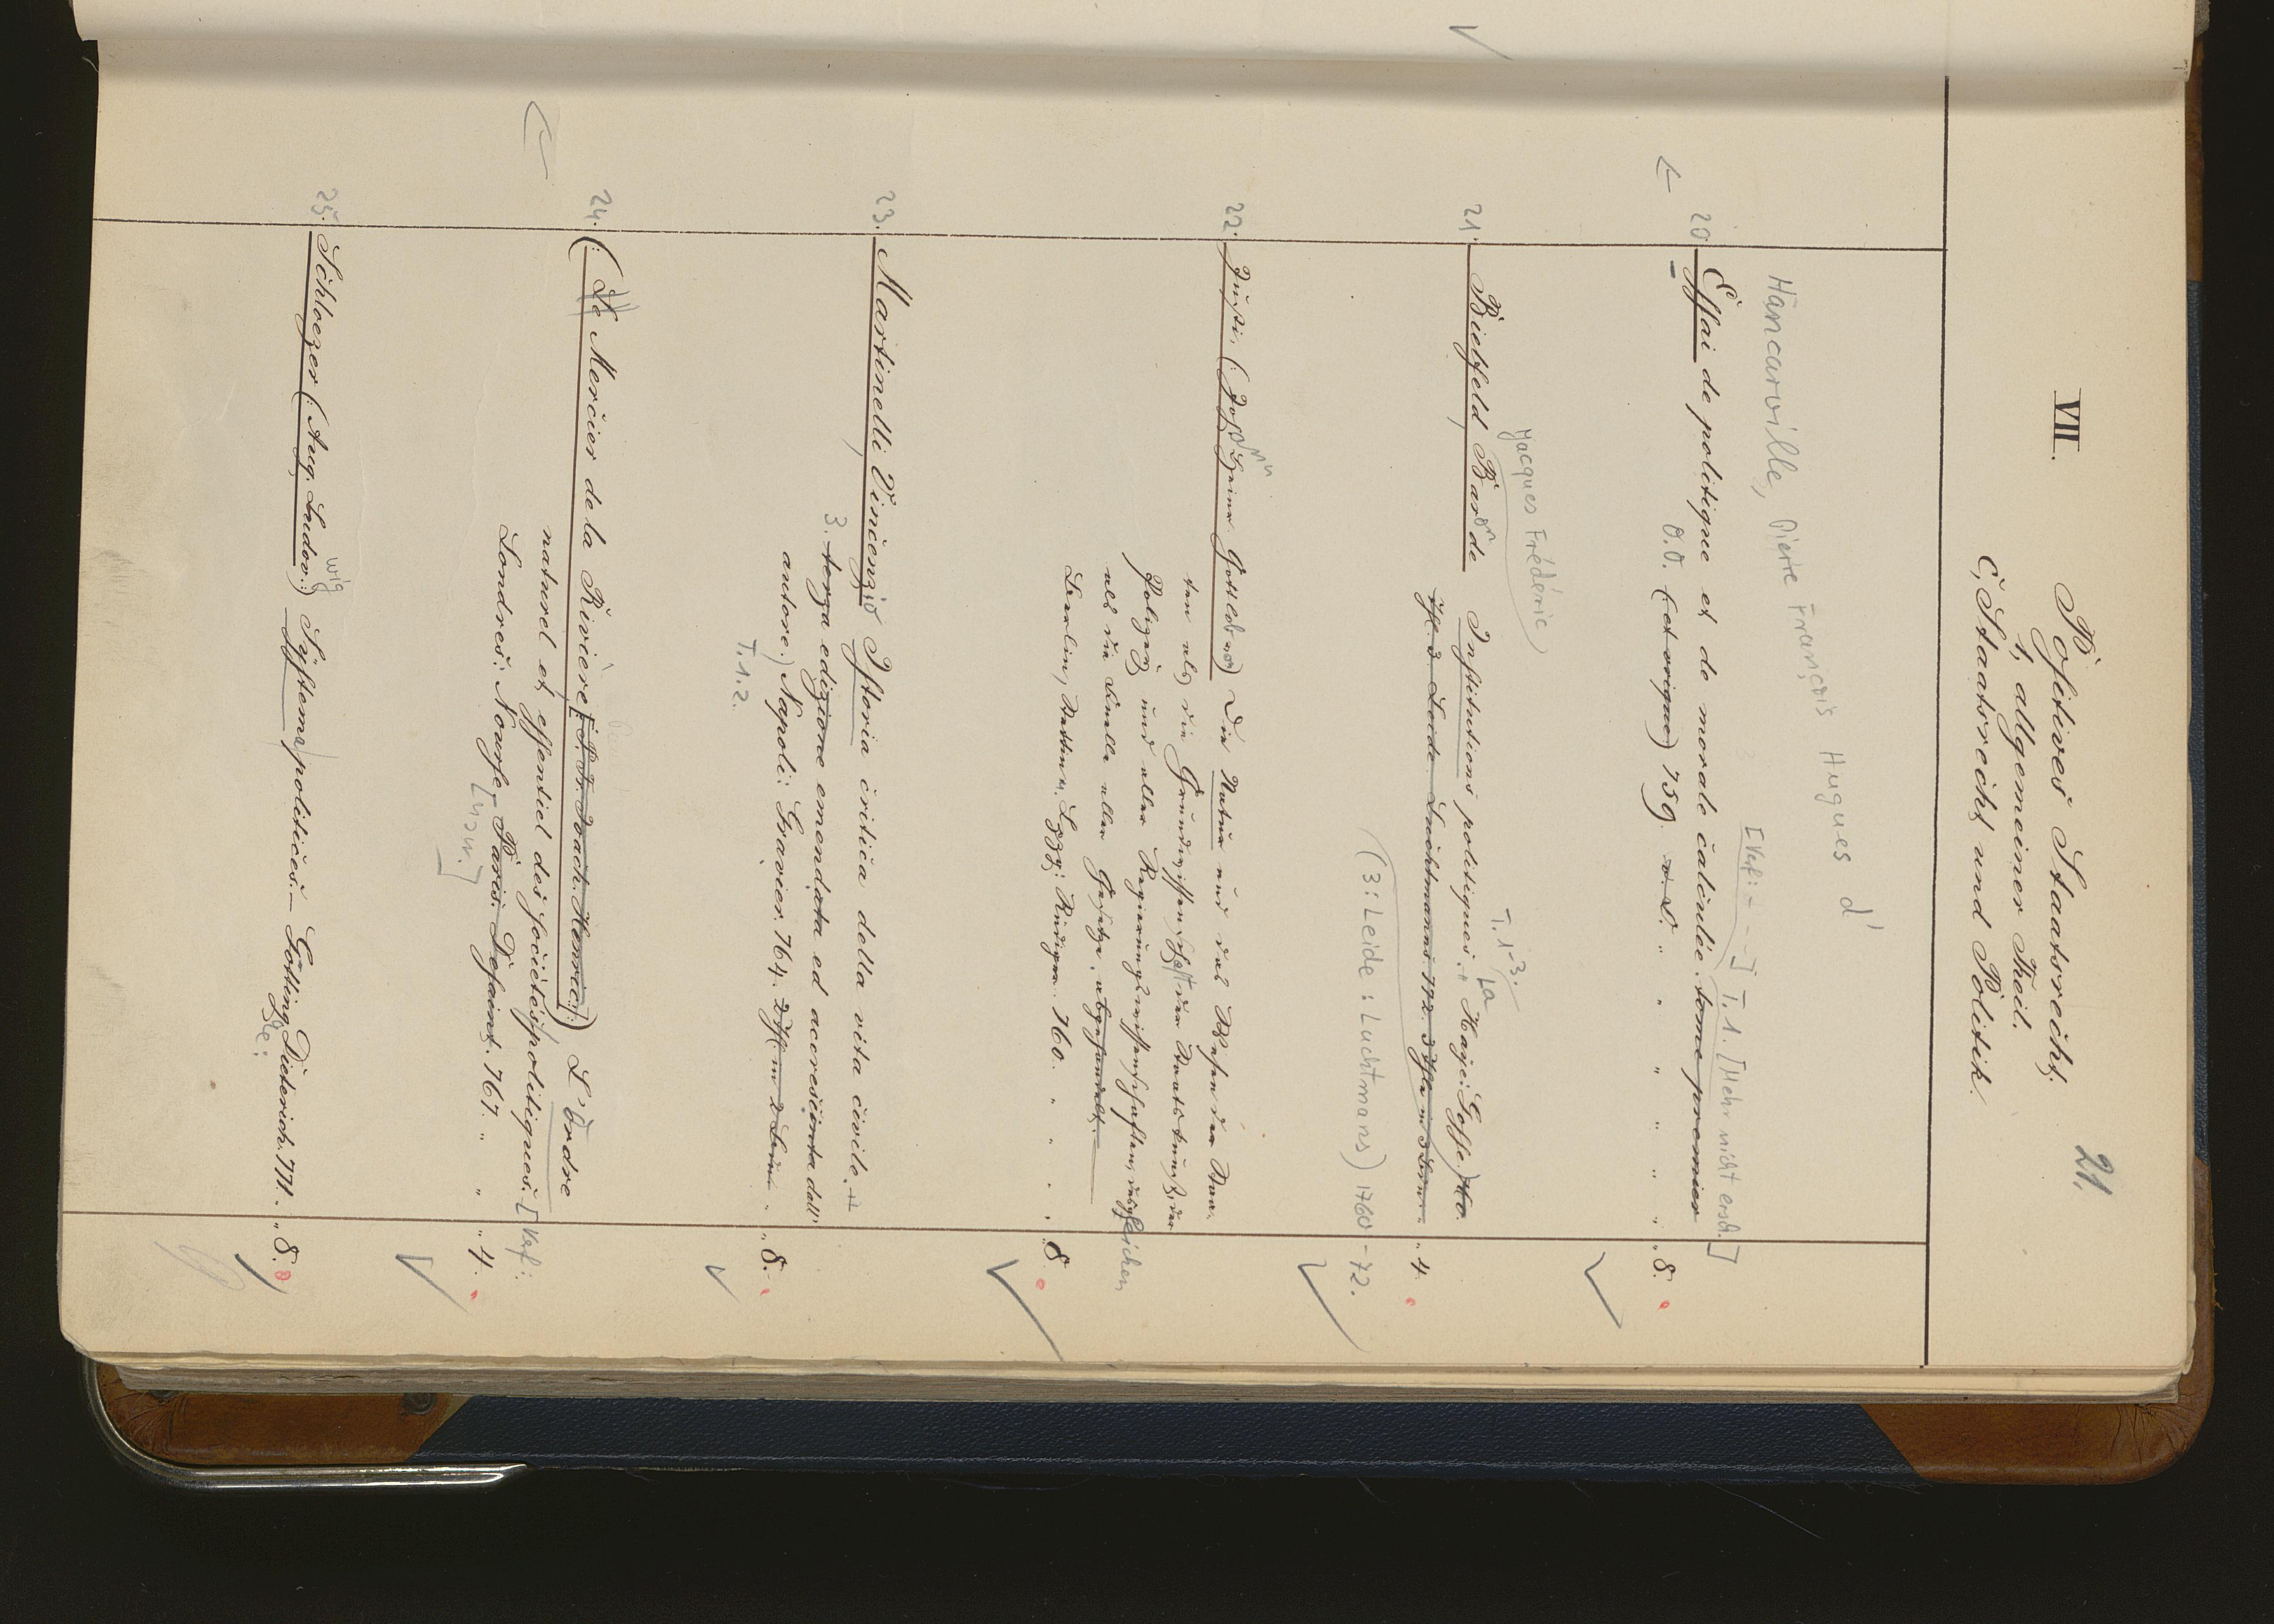 VII.
21.
Positives Staatsrecht.
1, allgemeiner Theil.
C, Staatsrecht und Politik.
Hancarville, Pierre François Hugues d'
[Verf: - - -] T. 1. [Mehr nicht ersch.]
20 Essai de politique et de morale calculée. tome premier
O.O. (et origne) 759. " " " " " 8.
Jacques Frédéric
T. 1-3.
La
21. Bielfeld, Baron de Institutions politiques. Haye: Gosse. 760.
Leide Luchtmans 772. " 4.
(3: Leide: Luchtmans) 1760-72.
22. Justi, (Johann Heinr Gottlob von) Die Natur und das Wesen der Staa-
ten als die Grundwissenschaft der Staatskunst, der
Polizey und aller Regierungswissenschaften, desgleichen
als die Quelle aller Gesetze, abgehandelt. —
Berlin, Stettin u. Lpzg: Rüdiger. 760. " " " 8
23. Martinelli, Vincenzio Istoria critica della vita civile.
3. terza edizione emendata ed accresciuta dall'
autore.) Napoli: Gravier. 764. " 8.
T. 1. 2.
24. (Le Mercier de la Rivière [: P. Fr. Joach. Henri :]) L'ordre
naturel et essentiel des sociétés politiques. [Verf:
Londres: Nourse, Paris: Desaint. 767. " " 4.
25. Schloezer (: Aug. Ludov :) Systema politices. — Götting. Dieterich. 771. " 8.
wig
ge: